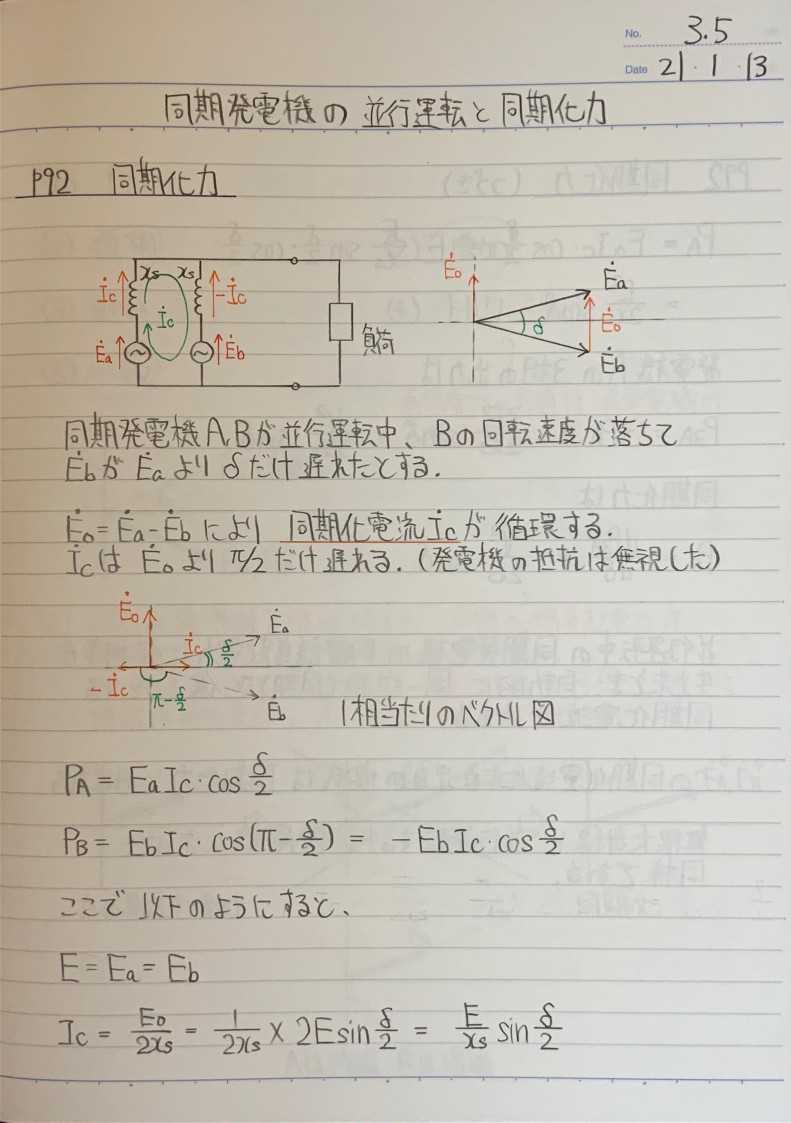 No. 3.5
Date 21・1・13
同期発電機の並行運転と同期化力
P92 同期化力
xs xs
İc -İc
İc
Ėa Ėb
負荷
Ė₀ Ėa
δ Ė₀
Ėb
同期発電機A,Bが並行運転中、Bの回転速度が落ちて
ĖbがĖaよりδだけ遅れたとする.
Ė₀=Ėa-Ėbにより 同期化電流İcが循環する.
İcはĖ₀よりπ/2だけ遅れる.(発電機の抵抗は無視した)
Ė₀ Ėa
İc δ/2
-İc
π-δ/2 Ėb
1相当たりのベクトル図
PA = EaIc・cos δ/2
PB = EbIc・cos(π-δ/2) = -EbIc・cos δ/2
ここで以下のようにすると、
E = Ea = Eb
Ic = E₀/2xs = 1/2xs × 2Esin δ/2 = E/xs sin δ/2